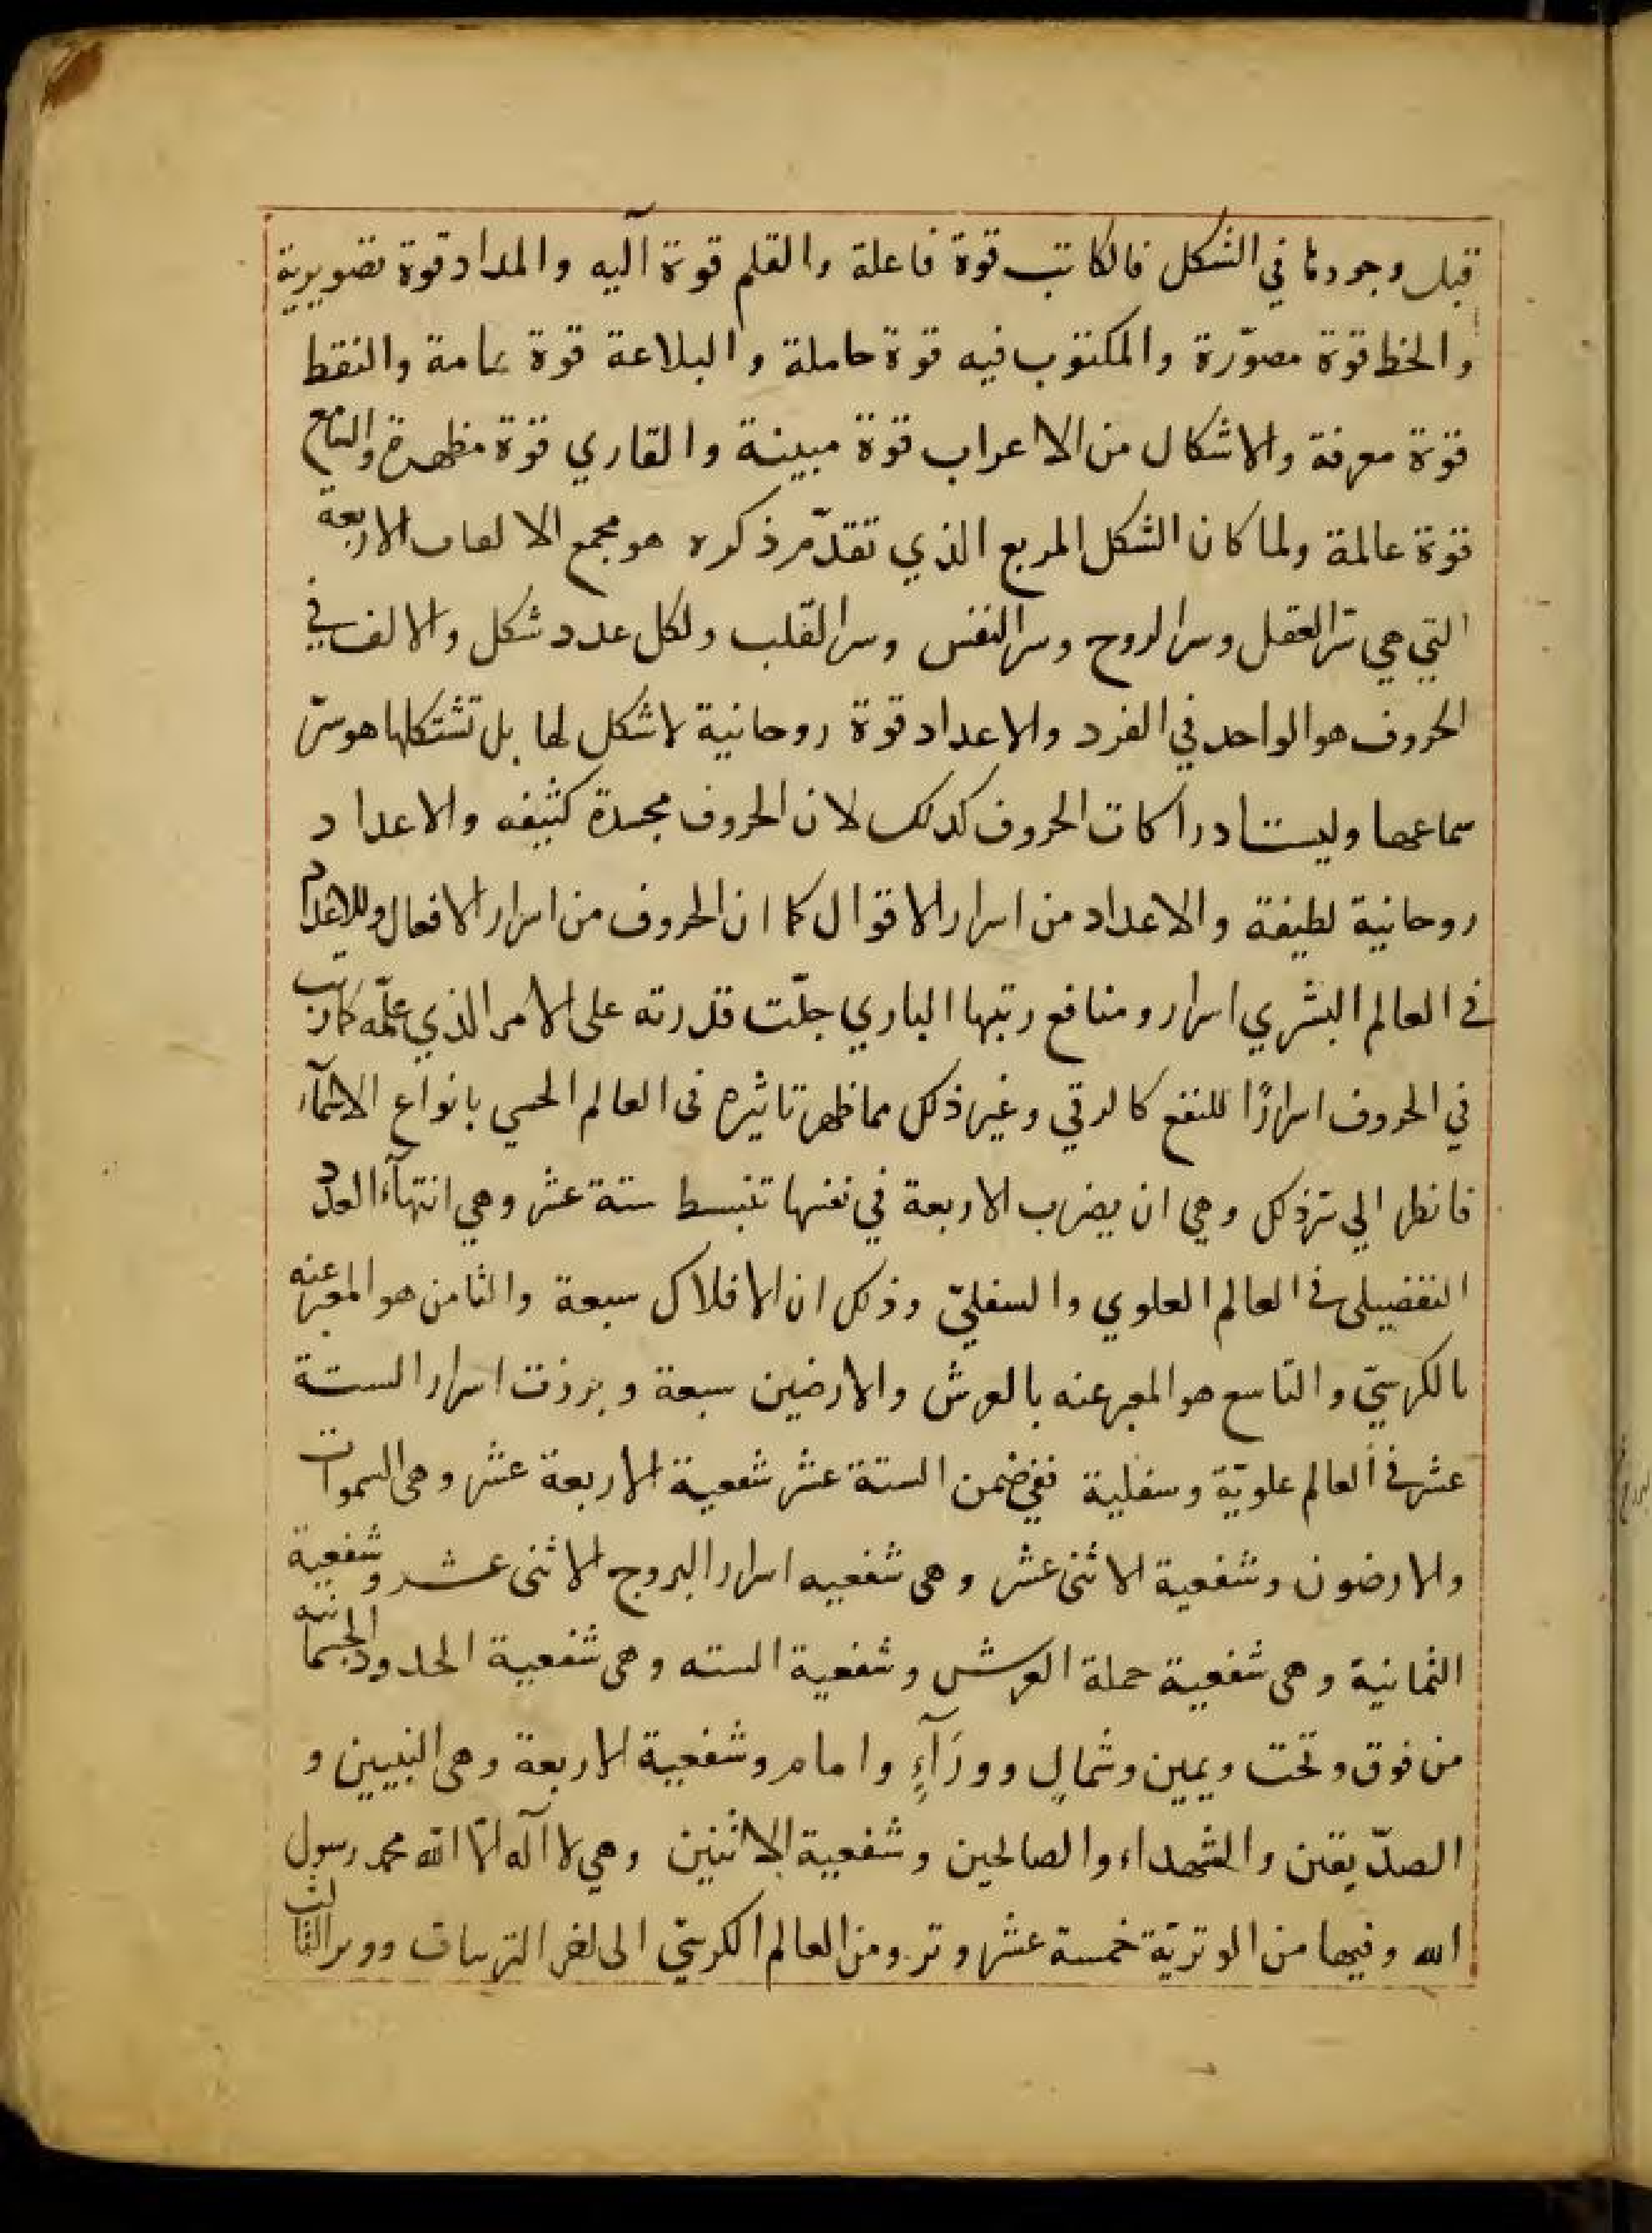 قبل وجودها في الشكل فالكاتب قوة فاعلة والقلم قوة آليه والمداد قوة تصويرية
والخط قوة مصوّرة والمكتوب فيه قوة حاملة والبلاغة قوة عامة والنقط
قوة معرفة والاشكال من الاعراب قوة مبينة والقاري قوة مظهرة والسامع
قوة عالمة ولما كان الشكل المربع الذي تقدّم ذكره هو مجمع الا الاربعة
التي هي سر العقل وسر الروح وسر النفس وسر القلب ولكل عدد شكل والالف في
الحروف هو الواحد في الفرد والاعداد قوة روحانية لا شكل لها بل تشتكلها هو سرّ
سماعها وليست ادراكات الحروف كذلك لان الحروف مجسدة كثيفه والاعداد
روحانية لطيفة والاعداد من اسرار الاقوال كما ان الحروف من اسرار الافعال وللاعداد
في العالم البشري اسرار ومنافع رتبها الباري جلّت قدرته على الامر الذي علّمه كما رتب
في الحروف اسرارًا للنفع كالرقي وغير ذلك مما ظهر تاثيره فى العالم الحسي بانواع الاسمآء
فانظر الي سر ذلك وهي ان يضرب الاربعة في نفسها تنبسط ستة عشر وهي انتهآء العدد
التفصيلى في العالم العلوي والسفليّ وذلك ان الافلاك سبعة والثامن هو المعبر عنه
بالكرسيّ والتاسع هو المعبر عنه بالعرش والارضين سبعة وبرزت اسرار الستة
عشر في العالم علويّة وسفلية ففي ضمن الستة عشر شفعية الاربعة عشر وهى السموات
والارضون وشفعية الاثنى عشر وهى شفعيه اسرار البروج الاثنى عشر وشفعية
الثمانية وهى شفعية حملة العرش وشفعية السته وهى شفعية الحدود الجسمانيه
من فوق وتحت ويمين وشمالٍ وورَآءٍ وامام وشفعية الاربعة وهى النبيين و
الصدّيقين والشهداء والصالحين وشفعية الاثنين وهي لا آله الّا الله محمد رسول
الله وفيها من الوتريّة خمسة عشر وتر ومن العالم الكرسيّ الى الثالث